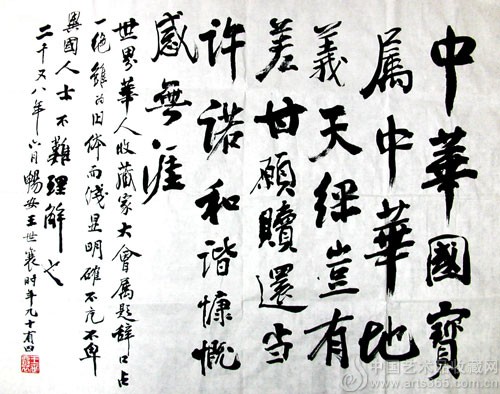 中華國寶
属中華地
義天经豈有
差甘願贖還当
许诺和谐慷慨
感無涯
世界華人收藏家大會属題辞口占
一绝雖为旧体而浅显明確不亢不卑
異國人士不難理解也
二千又八年六月暢安王世襄时年九十有四
中国艺术品收藏网
www.arts365.com.cn